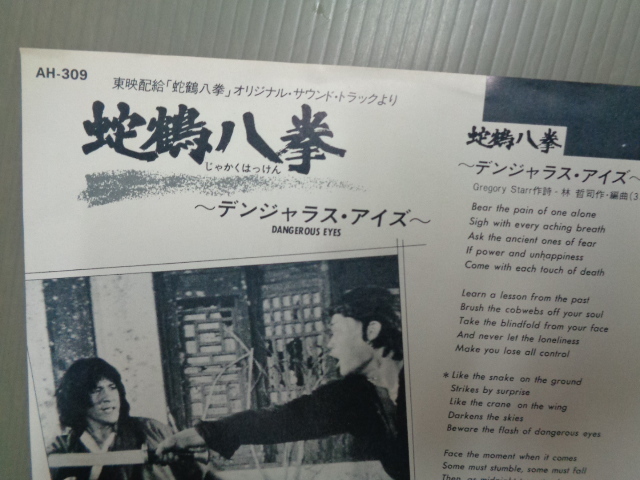 AH-309
東映配給「蛇鶴八拳」オリジナル・サウンド・トラックより
蛇鶴八拳
じゃかくはっけん
〜デンジャラス・アイズ〜
DANGEROUS EYES
蛇鶴八拳
〜デンジャラス・アイズ〜
Gregory Starr作詩・林 哲司作・編曲(3
Bear the pain of one alone
Sigh with every aching breath
Ask the ancient ones of fear
If power and unhappiness
Come with each touch of death
Learn a lesson from the past
Brush the cobwebs off your soul
Take the blindfold from your face
And never let the loneliness
Make you lose all control
* Like the snake on the ground
Strikes by surprise
Like the crane on the wing
Darkens the skies
Beware the flash of dangerous eyes
Face the moment when it comes
Some must stumble, some must fall